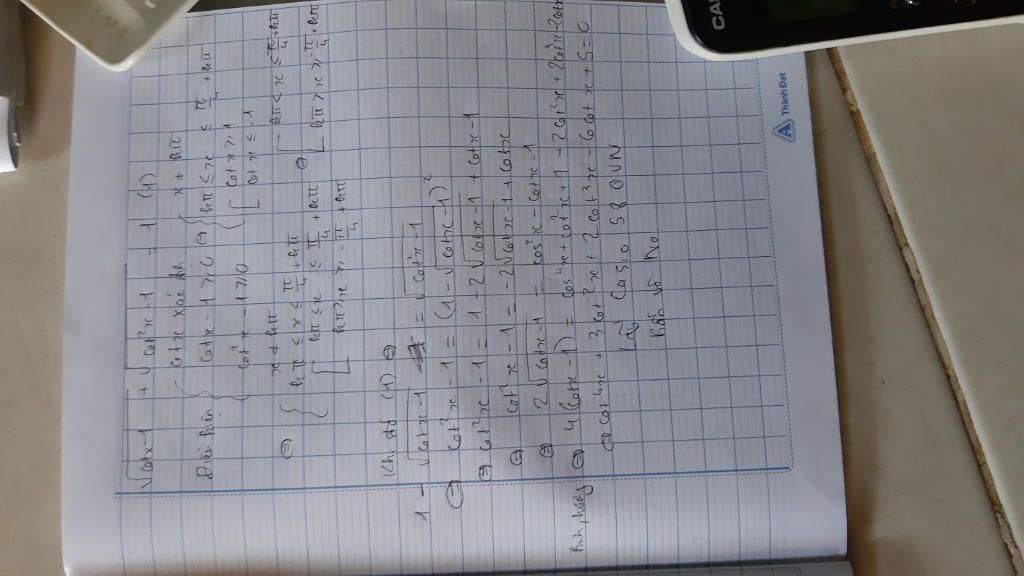 √(cotx-1) + √(cot²x-1) = 1 (1)
Điều kiện { cotx xác định
cotx - 1 ≥ 0
cot²x - 1 ≥ 0
⇔ { x ≠ kπ
kπ ≤ x ≤ π/4 + kπ
[ cotx ≥ 1
cotx ≤ -1
⇔ { x ≠ kπ
kπ ≤ x ≤ π/4 + kπ
[ kπ ≤ x ≤ π/4 + kπ
kπ ≥ x ≥ -π/4 + kπ
⇔ [ kπ < x ≤ π/4 + kπ
kπ > x ≥ π/4 + kπ
Khi đó (1) ⇔
1 - √(cotx-1) = √(cot²x-1)
⇔ cot²x - 1 = (1 - √(cotx-1))²
⇔ cot²x - 1 = 1 - 2√(cotx-1) + cotx - 1
⇔ cot²x - 1 = -2√(cotx-1) + cotx
⇔ 2√(cotx-1) = cos²x - cotx - 1
Bình phương ⇔ 4(cotx-1) = cos⁴x + cot²x + 1 + 2cot²x +
⇔ cot⁴x + 3cot²x + 2cot³x - 6cotx + 5 = 0
Lấy Casio 580VN
Bấm Vô No
Thành Đạt
CA